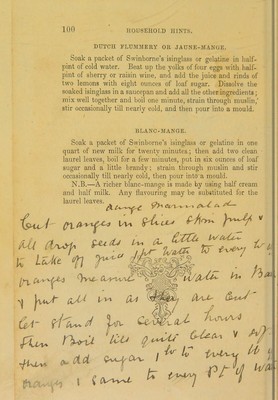 100 HOUSEHOLD HINTS.
DUTCH FLUMMERY OR JAUNE-MANGE.
Soak a packet of Swinborne's isinglass or gelatine in half-
pint of cold water. Beat up the yolks of four eggs with half-
pint of sherry or raisin wine, and add the juice and rinds of
two lemons with eight ounces of loaf sugar. Dissolve the
soaked isinglass in a saucepan and add all the other ingredients;
mix well together and boil one minute, strain through muslin,
stir occasionally till nearly cold, and then pour into a mould.
BLANC-MANGE.
Soak a packet of Swinborne's isinglass or gelatine in one
quart of new milk for twenty minutes; then add two clean
laurel leaves, boil for a few minutes, put in six ounces of loaf
sugar and a little brandy; strain through muslin and stir
occasionally till nearly cold, then pour into a mould.
N.B.—A richer blanc-mange is made by using half cream
and half milk. Any flavouring may be substituted for the
laurel leaves.
Marmalad
Cut oranges in slices skin pulp &
all drop seeds in a little water
to take off juice 1 pt water to every
oranges measure water in
& put all in as they are cut
let stand for several hours
then Boil till quite clear &
then add sugar 1 lb to every lb
oranges & same to every Pt of